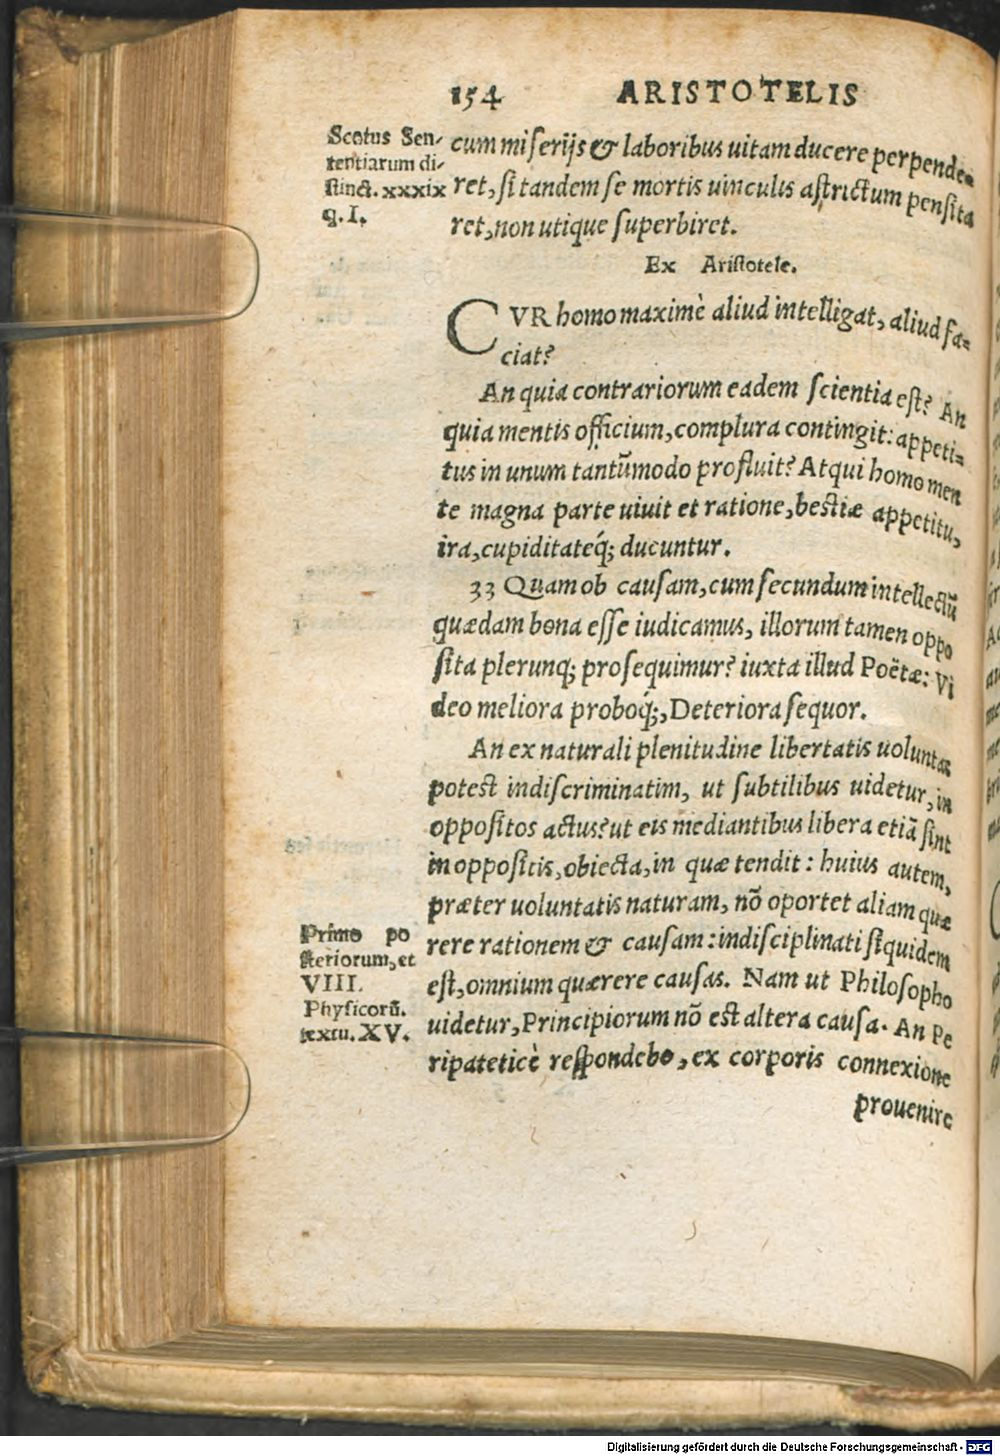 154 ARISTOTELIS
Scotus Sen-
tentiarum di-
stinct. xxxix
q. I.
cum miserijs & laboribus uitam ducere perpende=
ret, si tandem se mortis uinculis astrictum pensita
ret, non utique superbiret.
Ex Aristotele.
CVR homo maximè aliud intelligat, aliud fa=
ciat?
An quia contrariorum eadem scientia est? An
quia mentis officium, complura contingit: appeti=
tus in unum tantũmodo profluit? Atqui homo men
te magna parte uiuit et ratione, bestiæ appetitu,
ira, cupiditateq́; ducuntur.
33 Quam ob causam, cum secundum intellectũ
quædam bona esse iudicamus, illorum tamen oppo
sita plerunq; prosequimur? iuxta illud Poëtæ: Vi
deo meliora proboq́;, Deteriora sequor.
An ex naturali plenitudine libertatis uoluntas
potest indiscriminatim, ut subtilibus uidetur, in
oppositos actus? ut eis mediantibus libera etiã sint
in oppositis, obiecta, in quæ tendit: huius autem,
præter uoluntatis naturam, nõ oportet aliam quæ
rere rationem & causam: indisciplinati siquidem
est, omnium quærere causas. Nam ut Philosopho
uidetur, Principiorum nõ est altera causa. An Pe
ripateticè respondebo, ex corporis connexione
prouenire
Primo po
steriorum, et
VIII.
Physicorũ.
textu. XV.
Digitalisierung gefördert durch die Deutsche Forschungsgemeinschaft - DFG